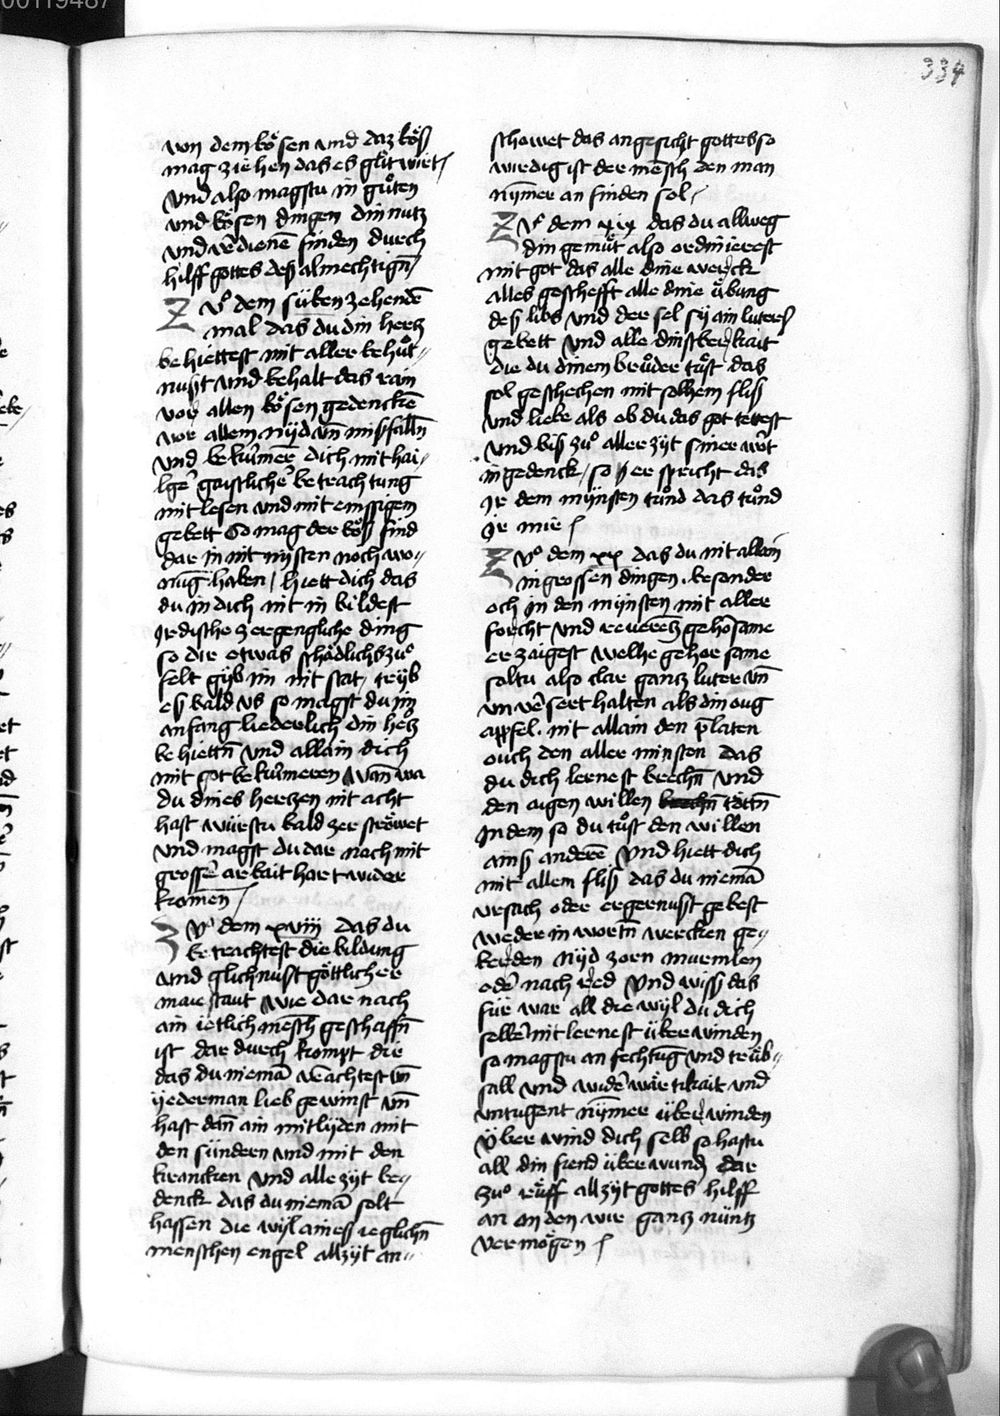 00119487
334
von dem bösen vnd daz böß
mag ziehen das es glit wirt /
vnd also magstu in gůten
vnd bösen dingen din nutz
vnd v̄dienē finden durch
hilff gottes deß almechtign̄ /
Zů dem sübenzehendē
mal das du din hertz
behiettest mit aller behůt„
nußt vnd behalt das rain
vor allen bösen gedenckē
vor allem nÿd vn̄ misfalln̄
vnd bekūmer dich mit hai„
lgē gaistlichē betrachtung
mit lesen vnd mit emssigem
gebett So mag der böß find
dar in nit nisten noch wo„
nūg haben / hiett dich das
du in dich nit in bildest
Irdische zergengliche ding
so dir etwas schädlichs zů
felt gib im nit stat / trÿb
eß bald vs so magst du im
anfang liederlich din hertz
behiettn̄ vnd allain dich
mit got bekūmeren wan̄ wa
du dines hertzen nit acht
hast würstu bald zerströwet
vnd magst du dar nach mit
grossē arbait hart wider
komen /
Zů dem xviij das du
betrachtest die bildung
vnd glichnust göttlicher
maiestaut wie dar nach
ain ietlich mēsch geschaffn̄
ist dar durch kompt dir
das du niemā v̄achtest vn̄
ÿederman lieb gewinst vn̄
hast dan̄ ain mitlÿden mit
den sündern vnd mit den
krancken vnd alle zÿt be„
denck das du niemā solt
hassen die wÿl ainess ieglichn̄
menschen engel allzÿt an„
schowet das angesicht gottes so
wirdig ist der mēsch den man
nȳmer an finden sol /
Zů dem xix das du allweg
din gemüt also ordinierest
mit got das alle dine werck
alles geschefft alle dine übung
deß libs vnd der sel sÿ ain luteres
gebett vnd alle dinstberkait
die du dinem brůder tůst das
sol geschechen mit solhem fliß
vnd liebe als ob du das got tettest
vnd biß zů aller zÿt siner wort
in gedenck / so er spricht das
Ir dem mÿnsten tůnd das tůnd
Ir mir /
Zů dem xx das du nit allain
in grossen dingen . besonder
och in den mÿnsten mit aller
forcht vnd reuerentz gehorsame
erzaigest welhe gehorsame
soltu also clar gantz luter vn̄
vnv̄sert halten als din oug
appfel . nit allain den p̄laten
ouch den aller minsten das
du dich lernest brechn̄ vnd
den aigen willen töttn̄
Indem so du tůst den willen
ainß anderē Vnd hiett dich
mit allem fliß das du niemā
vrsach oder ergernusst gebest
weder in wortn̄ wercken ge„
berden nÿd zorn murmlen
odē nach red Vnd wiss das
für war all die wÿl du dich
selbē nit lernest überwinden
so magstu anfechtūg vnd trüb„
sall vnd widerwärtikait vnd
vntugent nȳmer überwinden
Überwind dich selb so hastu
all din fiend überwundē dar
zů rüff allzÿt gottes hilff
an on den wir gantz nüntz
vermögen /